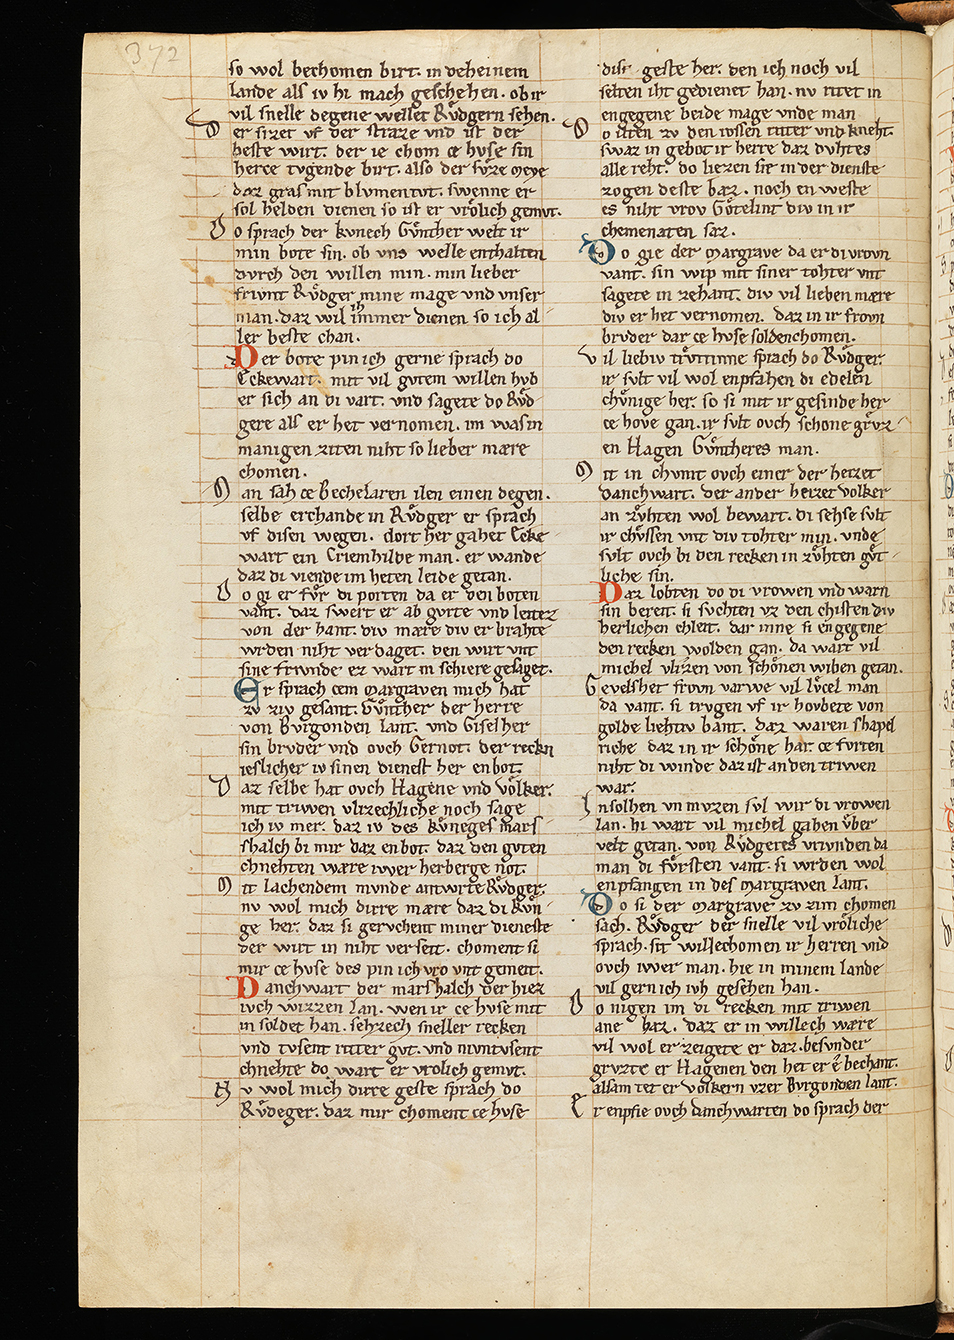 372
so wol bechomen birt. in deheinem
lande als iv hi mach geschehen. ob ir
vil snelle degene wellet Růdgern sehen.
D er sizet vf der straze vnd ist der
beste wirt. der ie chom ce hvse sin
herce tvgende birt. also der sv̊ze meye
daz gras mit blvmen tvt. swenne er
sol helden dienen so ist er vrőlich gemvt.
D o sprach der kvnech Gv̊nther welt ir
min bote sin. ob vns welle enthalten
dvrch den willen min. min lieber
frivnt Růdger mine mage vnd vnser
man. daz wil ich immer dienen so ich al
ler beste chan.
Der bote pin ich gerne sprach do
Eckewart. mit vil gvtem willen hvb
er sich an di vart. vnd sagete do Rv̊d
gere als er het vernomen. im was in
manigen ziten niht so lieber mære
chomen.
M an sah ce Bechelaren ilen einen degen.
selbe erchande in Rv̊dger er sprach
vf disen wegen. dort her gahet Ecke
wart ein Criemhilde man. er wande
daz di viende im heten leide getan.
D o gi er fv̊r di porten da er den boten
vant. daz swert er ab gvrte vnd leitez
von der hant. div mære div er brahte
wrden niht verdaget. den wirt vnt
sine frivnde ez wart in schiere gesaget.
Er sprach cem margraven mich hat
zv ziv gesant. Gv̊nther der herre
von Bvrgonden lant. vnd Giselher
sin brvder vnd ovch Gernot. der reckn
ieslicher iv sinen dienest her enbot.
D az selbe hat ovch Hagene vnd vőlker.
mit triwen vlizechliche noch sage
ich iv mer. daz iv des kv̊neges mars
shalch bi mir daz enbot. daz den gvten
chnehten wære iwer herberge not.
M it lachendem mvnde antwrte Rv̊dger.
nv wol mich dirre mære daz di kv̊n
ge her. daz si gervchent miner dieneste
der wirt in niht verseit. choment si
mir ce hvse des pin ich vro vnt gemeit.
Danchwart der marshalch der hiez
ivch wizzen lan. wen ir ce hvse mit
in soldet han. sehzech sneller recken
vnd tvsent ritter gvt. vnd nivntvsent
chnehte do wart er vrolich gemvt.
N v wol mich dirre geste sprach do
Rv̊deger. daz mir choment ce hvse
dise geste her. den ich noch vil
selten iht gedienet han. nv ritet in
engegene beide mage vnde man
D o ilten zv den rossen ritter vnd kneht.
swaz in gebot ir herre daz dvhtes
alle reht. do liezen sie in der dienste
zogen deste baz. noch en weste
es niht vrov Gőtelint div in ir
chemenaten saz.
Do gie der margrave da er di vrovn
vant. sin wip mit siner tohter vnt
sagete in zehant. div vil lieben mære
div er het vernomen. daz in ir frovn
brvder dar ce hvse solden chomen.
V il liebiv trv̊tinne sprach do Rv̊dger.
ir svlt vil wol enpfahen di edelen
chv̊nige her. so si mit ir gesinde her
ce hove gan. ir svlt ovch schone grv̊z
en Hagen Gv̊ntheres man.
M it in chvmt ovch einer der heizet
danchwart. der ander heizet volker
an zv̊hten wol bewart. di sehse svlt
ir chv̊ssen vnt div tohter min. vnde
svlt ovch bi den recken in zv̊hten gv̊t
liche sin.
Daz lobten do di vrowen vnd warn
sin bereit. si svchten vz den chisten div
herlichen chleit. dar inne si engegene
den recken wolden gan. da wart vil
michel vlizzen von schőnen wiben getan.
G evelshet frovn varwe vil lv̊cel man
da vant. si trvgen vf ir hovbete von
golde liehtiv bant. daz waren shapel
riche daz in ir schőne har. ce fvrten
niht di winde daz ist an den triwen
war.
I n solhen vn mvzen svl wir di vrowen
lan. hi wart vil michel gahen v̊ber
velt getan. von Rv̊dgeres vrivnden da
man di fv̊rsten vant. si wrden wol
enpfangen in des margraven lant.
Do si der margrave zv zim chomen
sach. Rv̊dger der snelle vil vrőliche
sprach. sit willechomen ir herren vnd
ovch iwer man. hie in minem lande
vil gern ich ivh gesehen han.
D o nigen im di recken mit triwen
ane haz. daz er in willech wære
vil wol er zeigete er daz. besvnder
grvzte er Hagenen den het er ê bechant.
alsam tet er volkern vzer Bvrgonden lant.
E r enpfie ovch danchwarten do sprach der